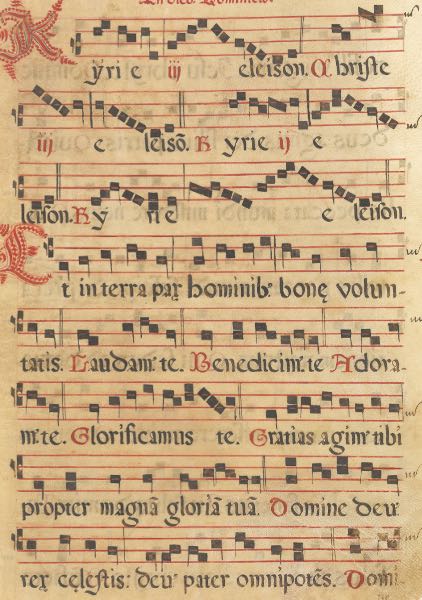 In dieb. Dominicis.
yrie iij eleison. C hriste
iij e leisō. K yrie ij e
leison. K y rie e leison.
t in terra pax hominib. bonę volun-
tatis. Laudam. te. Benedicim. te Adora-
m. te. Glorificamus te. Gratias agim. tibi
propter magnā gloriā tuā. Domine deu
rex cęlestis: deu pater omnipotēs. Domi